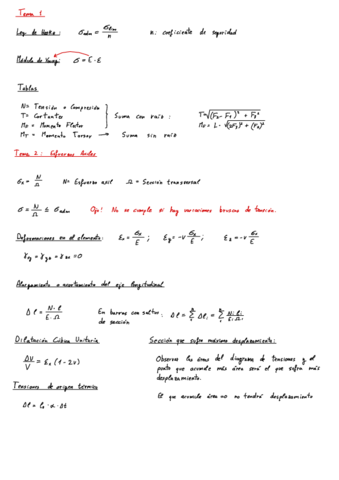 Tema 1
Ley de Hooke : σadm = σlim / n    n: coeficiente de seguridad
Módulo de Young : σ = E · ε
Tablas
N = Tensión o Compresión
T = Cortantes
MF = Momento Flector
Suma con raíz :
MT = Momento Torsor → Suma sin raíz
Tema 2 : Esfuerzos Axiles
σx = N / Ω    N = Esfuerzo axil    Ω = Sección transversal
σ = N / Ω ≤ σadm    Ojo! No se cumple si hay variaciones bruscas de tensión.
Deformaciones en el elemento : εx = σx / E ; εy = -ν σx / E ; εz = -ν σx / E
γxy = γyz = γxz = 0
Alargamiento o acortamiento del eje longitudinal
Δl = N · l / E · Ω    En barras con saltos de sección : Δl = Σ Δli = Σ Ni · li / Ei · Ωi
Dilatación Cúbica Unitaria
ΔV / V = εx (1 - 2ν)
Tensiones de origen térmico
Δl = l0 · α · Δt
Sección que sufra máximo desplazamiento :
Observar las áreas del diagrama de tensiones y el
punto que acumule más área será el que sufra más
desplazamiento.
El que acumule área = 0 no tendrá desplazamiento